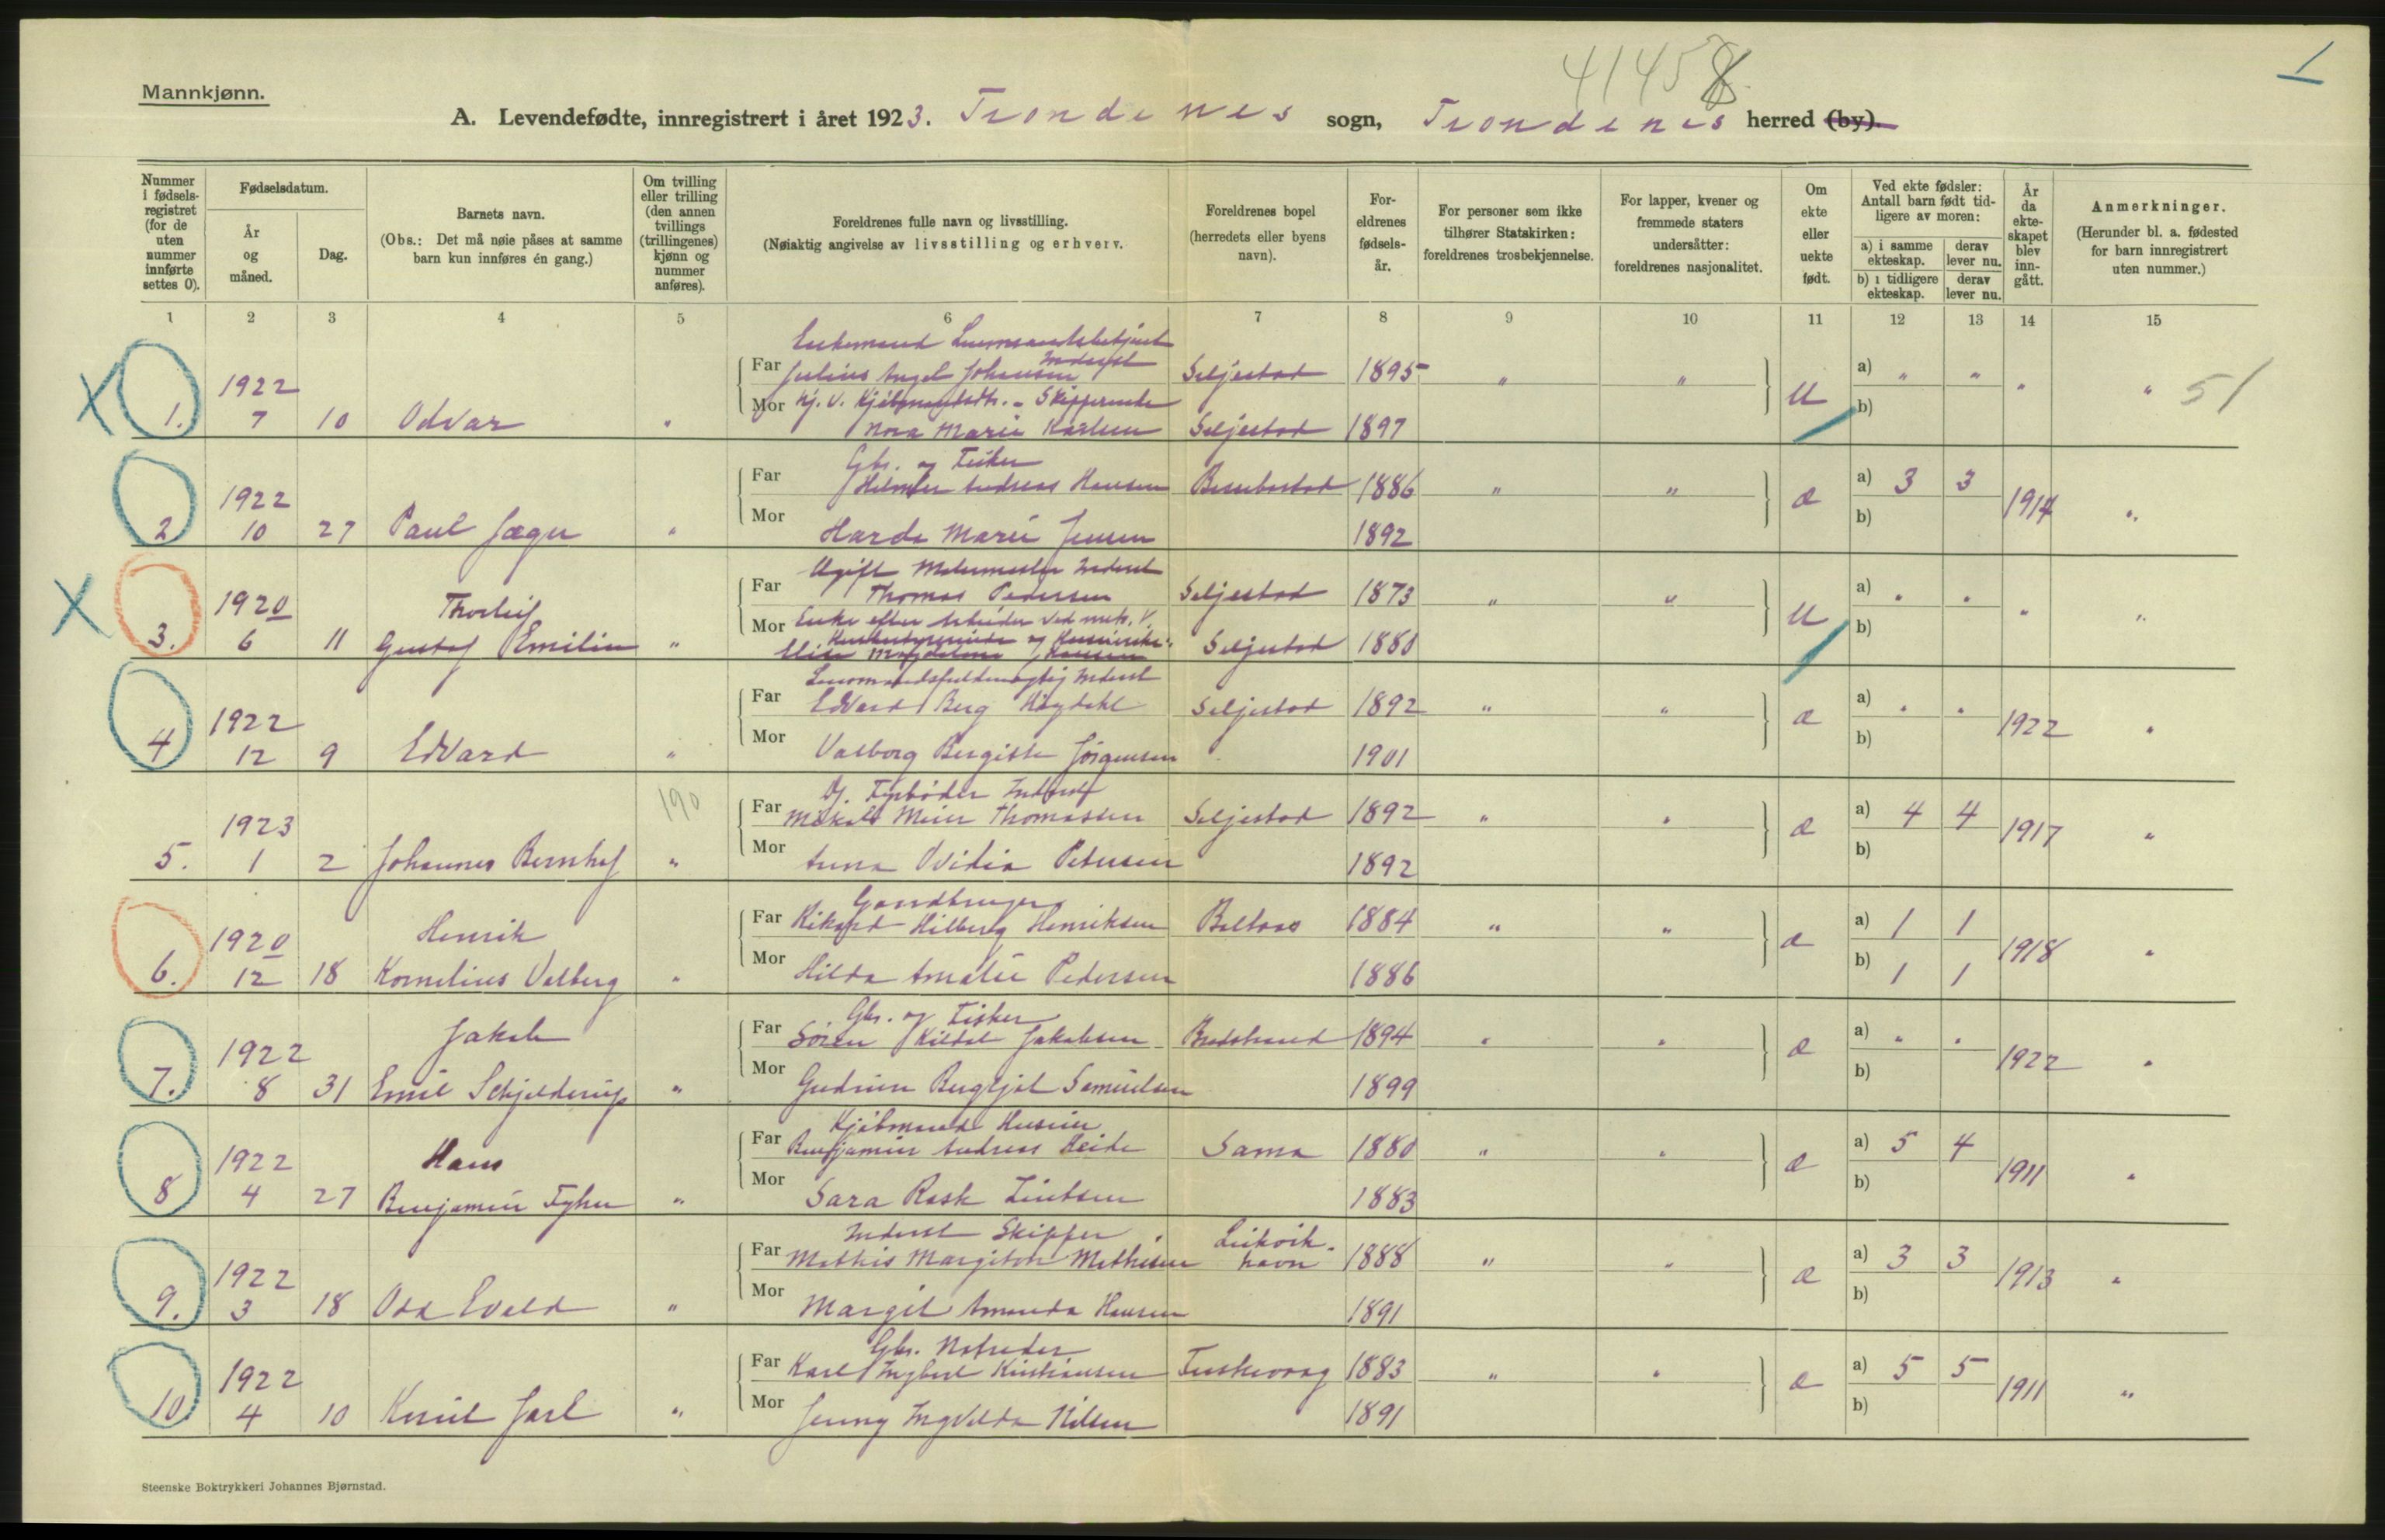 41458
1
Mannkjønn.
A. Levendefødte, innregistrert i året 1923. Trondenes sogn, Trondenes herred (by).
Nummer i fødsels-registret (for de uten nummer innførte settes 0).
Fødselsdatum.
År og måned.
Dag.
Barnets navn.
(Obs.: Det må nøie påses at samme barn kun innføres én gang.)
Om tvilling eller trilling (den annen tvillings (trillingenes) kjønn og nummer anføres).
Foreldrenes fulle navn og livsstilling.
(Nøiaktig angivelse av livsstilling og erhverv.
Foreldrenes bopel (herredets eller byens navn).
For-eldrenes fødsels-år.
For personer som ikke tilhører Statskirken: foreldrenes trosbekjennelse.
For lapper, kvener og fremmede staters undersåtter: foreldrenes nasjonalitet.
Om ekte eller uekte født.
Ved ekte fødsler: Antall barn født tid-ligere av moren:
a) i samme ekteskap.
derav lever nu.
b) i tidligere ekteskap.
derav lever nu.
År da ekte-skapet blev inn-gått.
Anmerkninger.
(Herunder bl. a. fødested for barn innregistrert uten nummer.)
1 2 3 4 5 6 7 8 9 10 11 12 13 14 15
Enkemand Lensmandsbetjent
Inderst
1922 Far Julius Angel Johansen Seljestad 1895 " " U a) " " " " 51
Mor
1. 7 10 Odvar " Nora Marie Karlsen Seljestad 1897 b)
Gbr. og Fisker
1922 Far Hilmer Andreas Hansen 1886 " " æ a) 3 3 1914 "
2 10 27 Paul Jæger " Mor Harda Marie Jensen 1892 b)
Ugift Inderst
1920 Thorleif Far Thomas Pedersen Seljestad 1873 " " U a) " " " "
Mor Enke efter Arbeider ved
3. 6 11 Gustaf Emilius " Elise Magdalena Hansen Seljestad 1880 b)
Lensmandsfuldmægtig Inderst
1922 Far Edvard Berg Høydahl Seljestad 1892 " " æ a) " " 1922 "
4 12 9 Edvard " Mor Valborg Bergitte Jørgensen 1901 b)
190
Fyrbøder Inderst
1923 Far Mikal Meier Thomassen Seljestad 1892 " " æ a) 4 4 1917 "
5. 1 2 Johannes Bernhof " Mor Anna Ovidia Petersen 1892 b)
Gaardbruger
1920 Henrik Far Rikard Hilberg Henriksen Beltaas 1884 " " æ a) 1 1 1918 "
6. 12 18 Kornelius Valberg " Mor Hilda Amalie Pedersen 1886 b) 1 1
Gbr. og Fisker
1922 Jakob Far Søren Kildal Jakobsen Bredstrand 1894 " " æ a) " " 1922 "
7. 8 31 Emil Schjelderup " Mor Gudrun Bergljot Samuelsen 1899 b)
Kjøbmand Huseier
1922 Hans Far Benjamin Andreas Heide Sama 1880 " " æ a) 5 4 1911 "
8 4 27 Benjamin " Mor Sara Rask 1883 b)
Inderst Skipper
1922 Far Mathis Margiton Mathisen havn 1888 " " æ a) 3 3 1913 "
9. 3 18 Odd Evald " Mor Margit Amanda Hansen 1891 b)
Gbr.
1922 Far Karl Ingbert Kristiansen 1883 " " æ a) 5 5 1911 "
10 4 10 Jarl " Mor Jenny Ingvelda Nilsen 1891 b)
Steenske Boktrykkeri Johannes Bjørnstad.